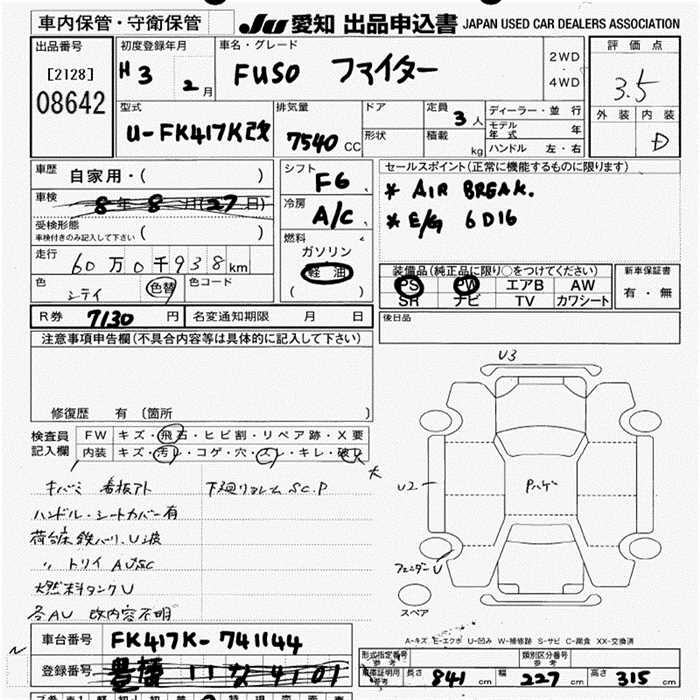 車内保管・守衛保管
JU 愛知 出品申込書 JAPAN USED CAR DEALERS ASSOCIATION
出品番号
[2128]
08642
初度登録年月
H3 2月
車名・グレード
FUSO ファイター
2WD
・
4WD
評価点
3.5
外装 内装
D
型式
U-FK417K改
排気量
7540 CC
ドア
形状
定員 3人
積載 kg
ディーラー・並行
モデル年式 年
ハンドル 左・右
車歴 自家用・( )
車検 8年8月(27日)
受検形態
車検付きのみ記入して下さい ( )
走行 60万0千938km
色 シテイ 色替 色コード
R券 7130円 名変通知期限 月 日
シフト F6
冷房 A/C
燃料
ガソリン
軽油
( )
セールスポイント(正常に機能するものに限ります)
* AIR BREAK.
* E/G 6D16
装備品(純正品に限り○をつけてください)
PS PW エアB AW
SR ナビ TV カワシート
新車保証書
有・無
後日品
注意事項申告欄(不具合内容等は具体的に記入して下さい)
修復歴 有 〔箇所 〕
検査員記入欄
FW キズ・飛石・ヒビ割・リペア跡・X要
内装 キズ・汚レ・コゲ・穴・スレ・キレ・破レ 大
キバミ 看板アト 下廻リフレム S.C.P
ハンドル・シートカバー有
荷台床鉄バリ、U波
〃 トリイ AUSC
燃料タンクU
各AU 改内容不明
U3
U2
Pハゲ
フェンダーU
スペア
A-キズ E-エクボ U-凹み W-補修跡 S-サビ C-腐食 XX-交換済
車台番号 FK417K-741144
登録番号 豊橋 11 な 4101
形式指定番号
参考
類別区分番号
参考
車庫証明用
参考
長さ 841cm 幅 227cm 高さ 315cm